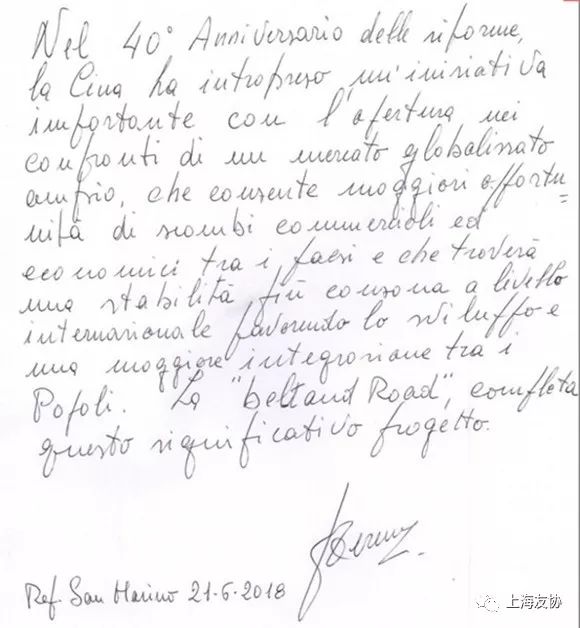 Nel 40° Anniversario delle riforme,
la Cina ha intrapreso un'iniziativa
importante con l'apertura nei
confronti di un mercato globalizzato
ampio, che consente maggiori opportu=
nità di scambi commerciali ed
economici tra i paesi e che troverà
una stabilità più consona a livello
internazionale favorendo lo sviluppo e
una maggiore integrazione tra i
Popoli. La "belt and Road", completa
questo significativo progetto.
Rep. San Marino 21-6-2018
上海友协